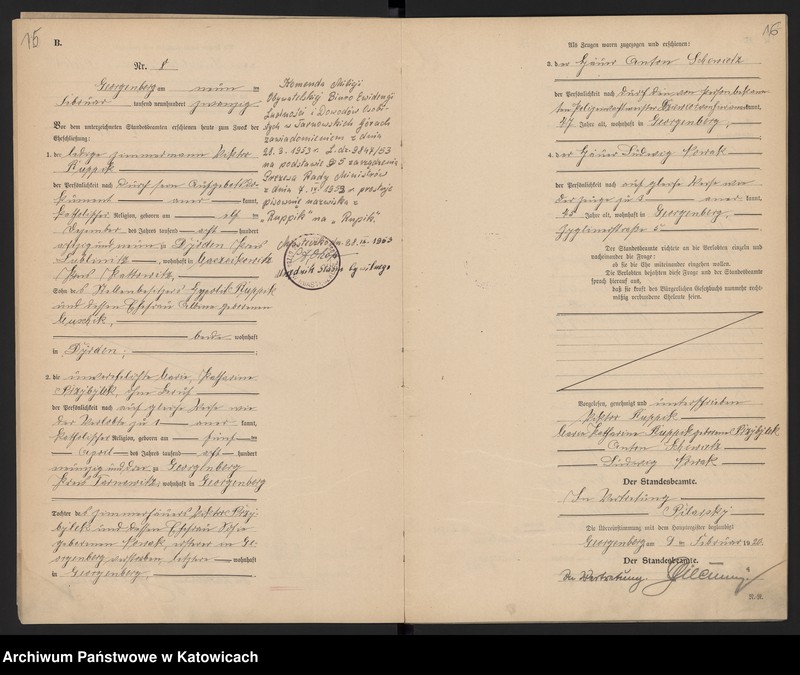 15
B.
Nr. 8
Georgenberg am neun ten
Februar tausend neunhundert zwanzig
Vor dem unterzeichneten Standesbeamten erschienen heute zum Zweck der
Eheschließung:
1. der ledige Zimmermann Viktor
Ruppik
der Persönlichkeit nach durch sein Aufgebot be-
kannt,
katholischer Religion, geboren am elf ten
Dezember des Jahres tausend acht hundert
achtzig und neun zu
Lublinitz, wohnhaft in
Kreis Kattowitz,
Sohn des Stellenbesitzers Ruppik
und dessen Ehefrau geborenen
beide wohnhaft
in
2. die unverehelichte Maria Katharina
Przybylek, ohne Beruf
der Persönlichkeit nach auf gleiche Weise wie
der Verlobte zu 1 kannt,
katholischer Religion, geboren am fünf ten
April des Jahres tausend acht hundert
neunzig und drei zu Georgenberg
Kreis Tarnowitz, wohnhaft in Georgenberg
Tochter des Zimmerhäuers Viktor Przy-
bylek und dessen Ehefrau
geborenen Nowak, ersterer in Ge-
orgenberg verstorben, letztere wohnhaft
in Georgenberg.
Komenda Milicji
Obywatelskiej Biuro Ewidencji
Ludności i Dowodów Osobi-
stych w Tarnowskich Górach
zawiadomieniem z dnia
28.3.1953 r. L.dz. 3847/53
na podstawie § 5 zarządzenia
Prezesa Rady Ministrów
z dnia 1953 r. prostuje
pisownię nazwiska z
"Ruppik" na "Rupik".
1953
Urzędnik Stanu Cywilnego
16
Als Zeugen waren zugezogen und erschienen:
3. der Häuer Anton
der Persönlichkeit nach durch den von Person bekann-
ten kannt,
47 Jahre alt, wohnhaft in Georgenberg,
4. der Häuer Ludwig Nowak
der Persönlichkeit nach auf gleiche Weise wie
der Zeuge zu 3 kannt,
45 Jahre alt, wohnhaft in Georgenberg,
5
Der Standesbeamte richtete an die Verlobten einzeln und
nacheinander die Frage:
ob sie die Ehe miteinander eingehen wollen.
Die Verlobten bejahten diese Frage und der Standesbeamte
sprach hierauf aus,
daß sie kraft des Bürgerlichen Gesetzbuchs nunmehr recht-
mäßig verbundene Eheleute seien.
Vorgelesen, genehmigt und unterschrieben
Viktor Ruppik
Maria Katharina Ruppik geborene Przybylek
Anton
Ludwig Nowak
Der Standesbeamte.
In Vertretung
Pilarsky
Die Übereinstimmung mit dem Hauptregister beglaubigt
Georgenberg am 9 ten Februar 1920.
Der Standesbeamte.
In Vertretung.
Archiwum Państwowe w Katowicach